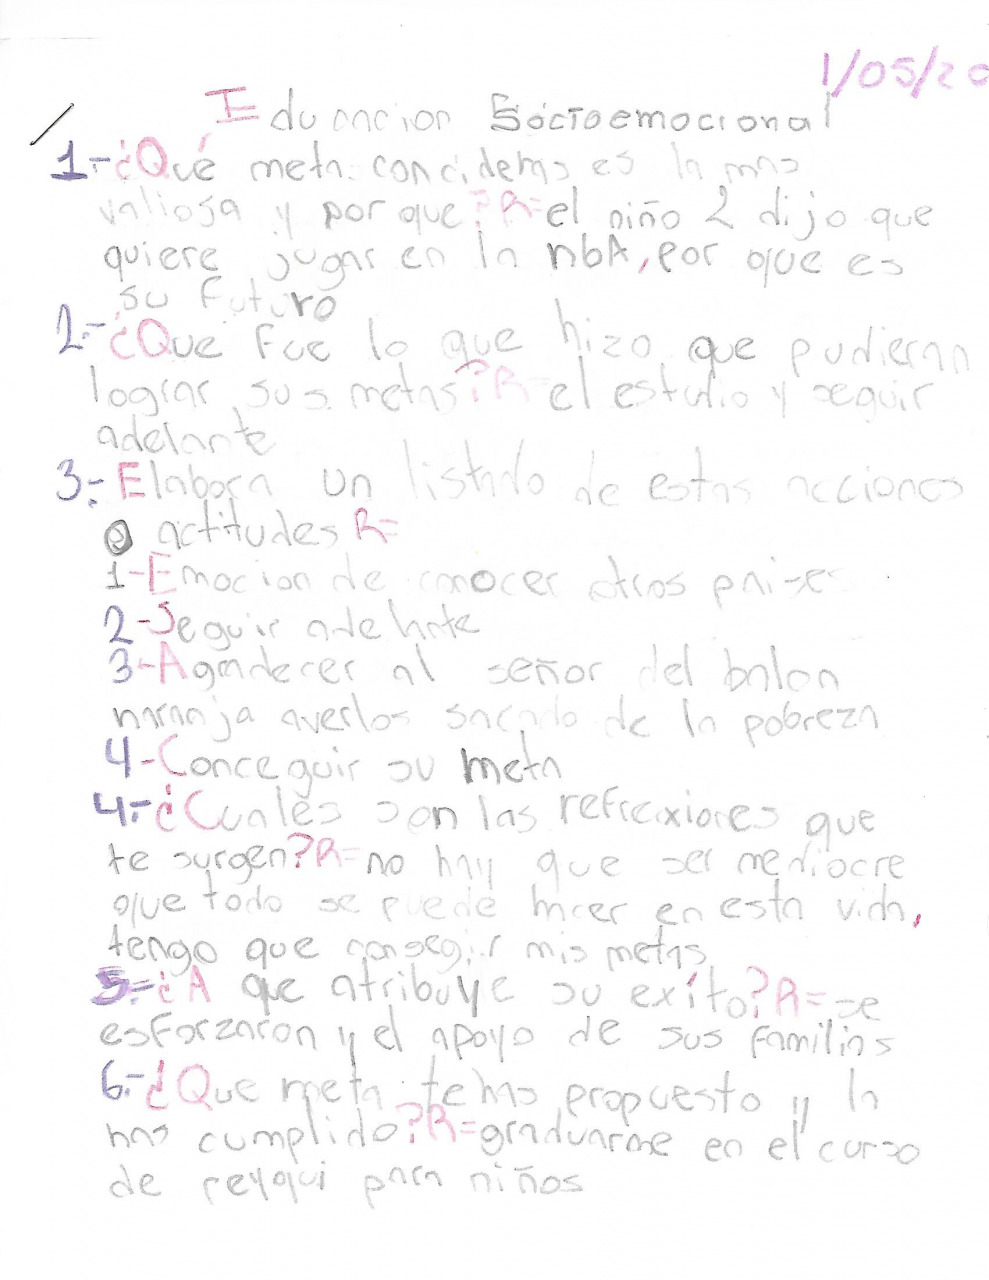 1/05/20
Educacion Socioemocional
1.-¿Qué meta concideras es la mas
valiosa y por que?R=el niño 2 dijo que
quiere jugar en la nbA, Por que es
su futuro
2.-¿Que fue lo que hizo que pudieran
lograr sus metas?R=el estudio y seguir
adelante
3.-Elabora un listado de estas acciones
o actitudes R=
1-Emocion de conocer otros paises
2-Seguir adelante
3-Agradecer al señor del balon
naranja averlos sacado de la pobreza
4-Conceguir su meta
4.-¿Cuales son las reflexiones que
te surgen?R=no hay que ser mediocre
que todo se puede hacer en esta vida,
tengo que consegir mis metas
5.-¿A que atribuye su exito?R=se
esforzaron y el apoyo de sus familias
6.-¿Que meta te has propuesto y la
has cumplido?R=graduarme en el curso
de reyqui para niños